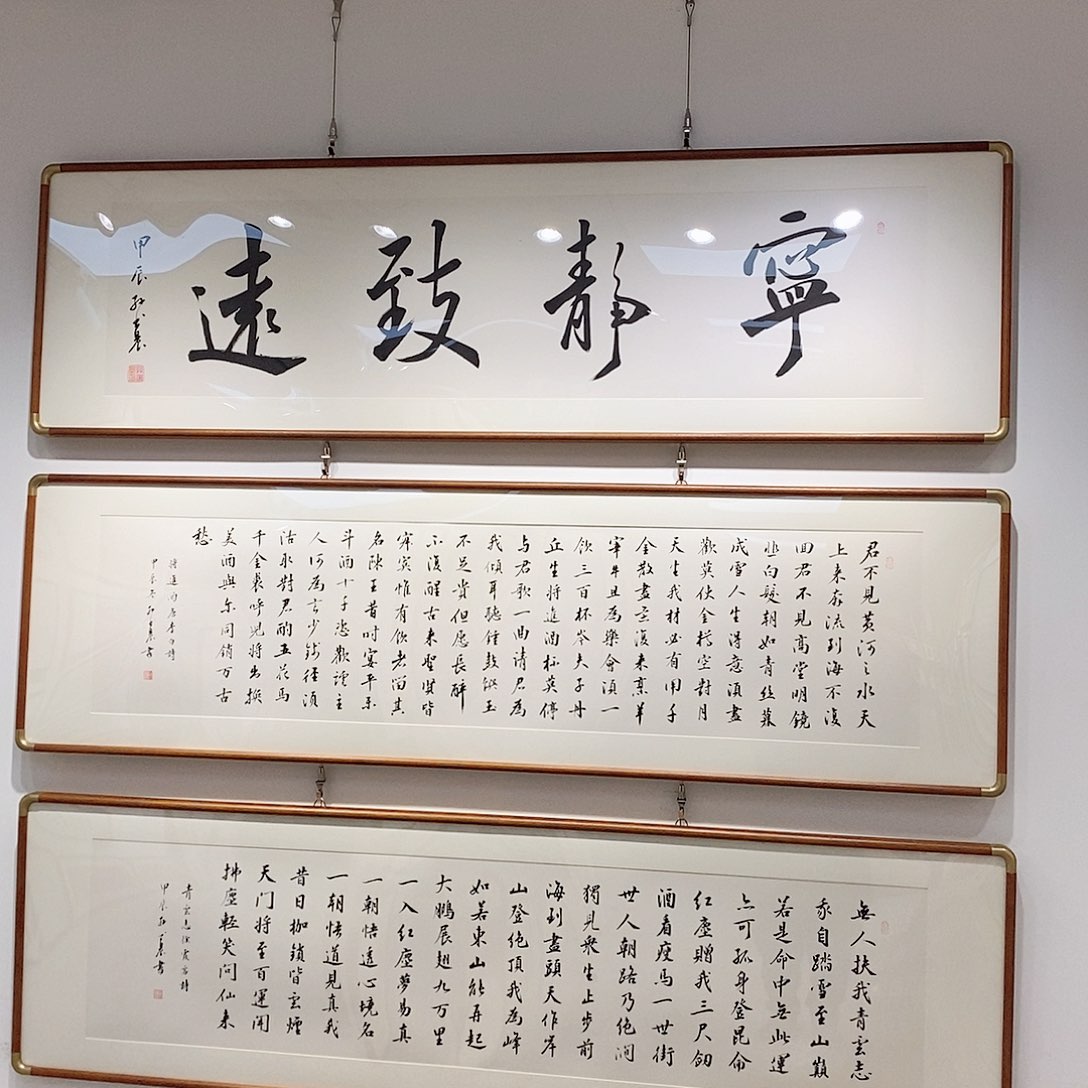 寧靜致遠
甲辰
君不見黄河之水天
上来奔流到海不復
回君不見高堂明鏡
悲白髮朝如青丝暮
成雪人生得意須盡
歡莫使金樽空對月
天生我材必有用千
金散盡還復来烹羊
宰牛且為樂會須一
飲三百杯岑夫子丹
丘生将進酒杯莫停
与君歌一曲请君為
我傾耳聽鍾鼓饌玉
不足貴但愿長醉
不復醒古来聖賢皆
寂寞惟有飲者留其
名陳王昔时宴平乐
斗酒十千恣歡謔主
人何為言少錢径須
沽取對君酌五花馬
千金裘呼児将出換
美酒與尔同銷万古
愁
将進酒唐李白詩
甲辰冬書
無人扶我青雲志
我自踏雪至山巅
若是命中無此運
亦可孤身登昆侖
红塵贈我三尺劍
酒看疫馬一世街
世人朝路乃绝涧
獨見衆生止步前
海到盡頭天作岸
山登绝頂我為峰
如若東山能再起
大鵬展翅九万里
一入红塵夢易真
一朝悟透心境名
一朝悟道見真我
昔日枷鎖皆雲煙
天门将至百運開
拂塵輕笑问仙来
青雲志詩
甲辰書